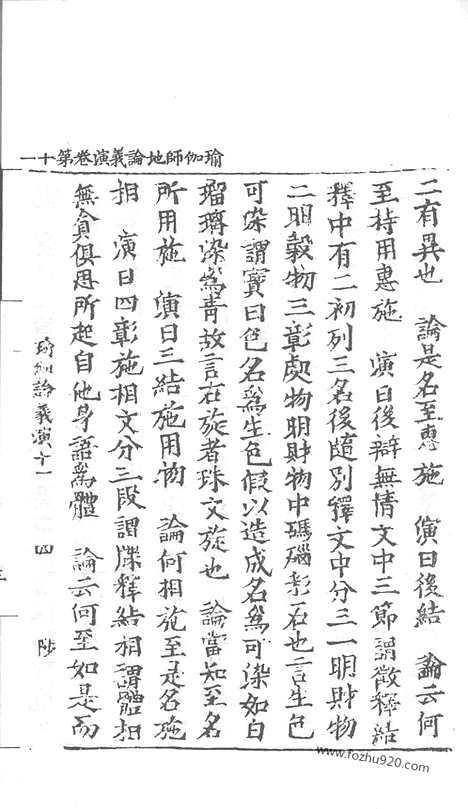 瑜伽師地論義演卷第十一
二有異也　論是名至惠施　演曰後結　論云何
至持用惠施　演曰後辯無情文中三節謂徵釋結
釋中有二初列三名後隨別釋文中分三一明財物
二明穀物三彰處物明財物中碼碯彰石也言生色
可染謂寶曰色名爲生色假以造成名爲可染如白
瑠璃染爲青故言右旋者珠文旋也　論當知至名
所用施　演曰三結施用物　論何相施至是名施
相　演曰四彰施相文分三段謂牒釋結相謂體相
無貪俱思所起自他身語爲體　論云何至如是而
瑜伽論義演十一　四　陟
www.fozhu920.com